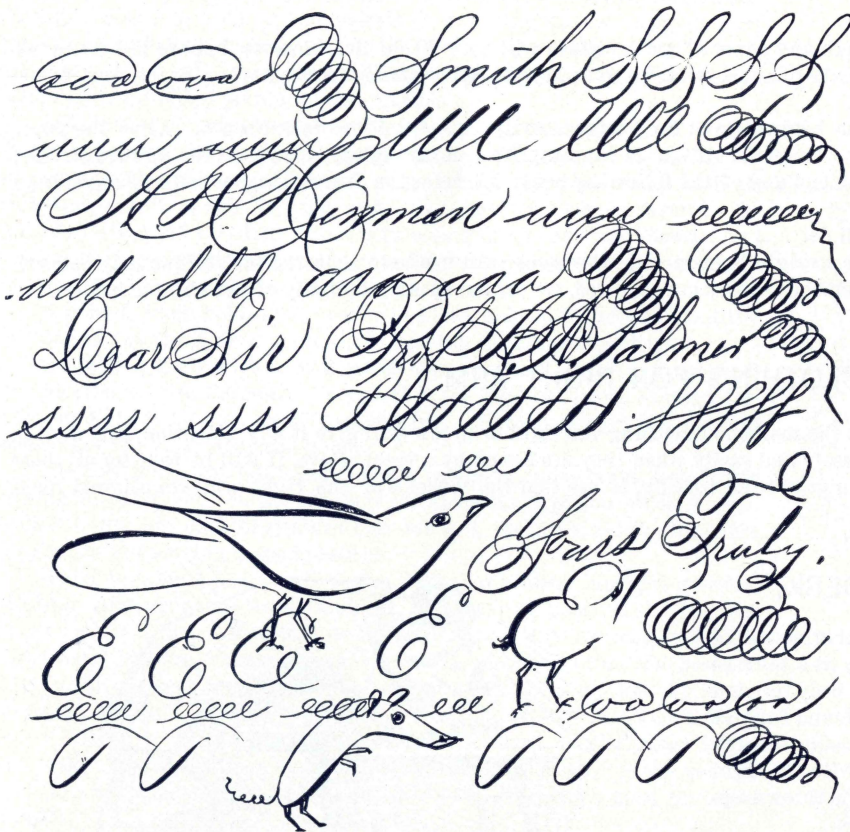 ooa ooa Smith S S S S
uuu uuu llll llll
A H Hinman uuu eeeeeee
ddd ddd aaa aaa
Dear Sir Prof A. A. Palmer
ssss ssss
eeeee eee
Yours Truly.
E E E E
eeeee eeeee eeeee eee oo oo oo